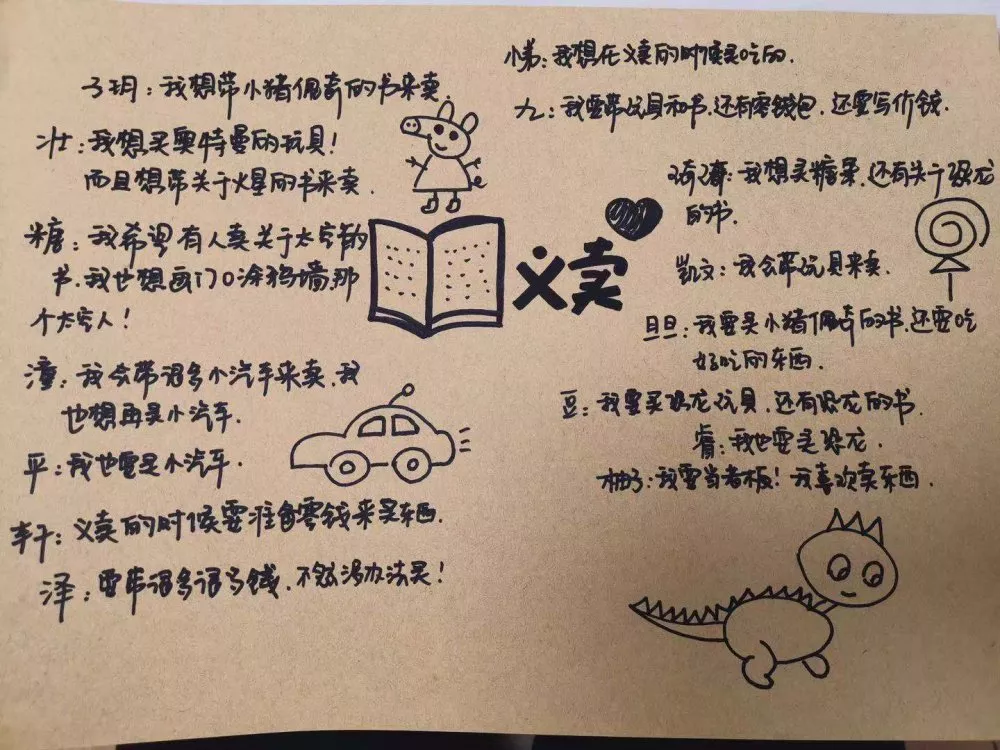 子玥：我想带小猪佩奇的书来卖.
壮：我想买奥特曼的玩具！
而且想带关于火星的书来卖.
糖：我希望有人卖关于太空的
书.我也想画门口涂鸦墙那
个太空人！
潼：我会带很多小汽车来卖.我
也想再买小汽车.
平：我也要买小汽车.
义卖的时候要准备零钱来买东西.
泽：要带很多很多钱.不然没办法买！
义卖
小弟：我想在义卖的时候买吃的.
九：我要带玩具和书.还有零钱包.还要写价钱.
我想买糖果.还有关于恐龙
的书.
凯文：我会带玩具来卖.
旦旦：我要买小猪佩奇的书.还要吃
好吃的东西.
豆：我要买恐龙玩具.还有恐龙的书.
睿：我也要买恐龙.
柚子：我要当老板！我喜欢卖东西.